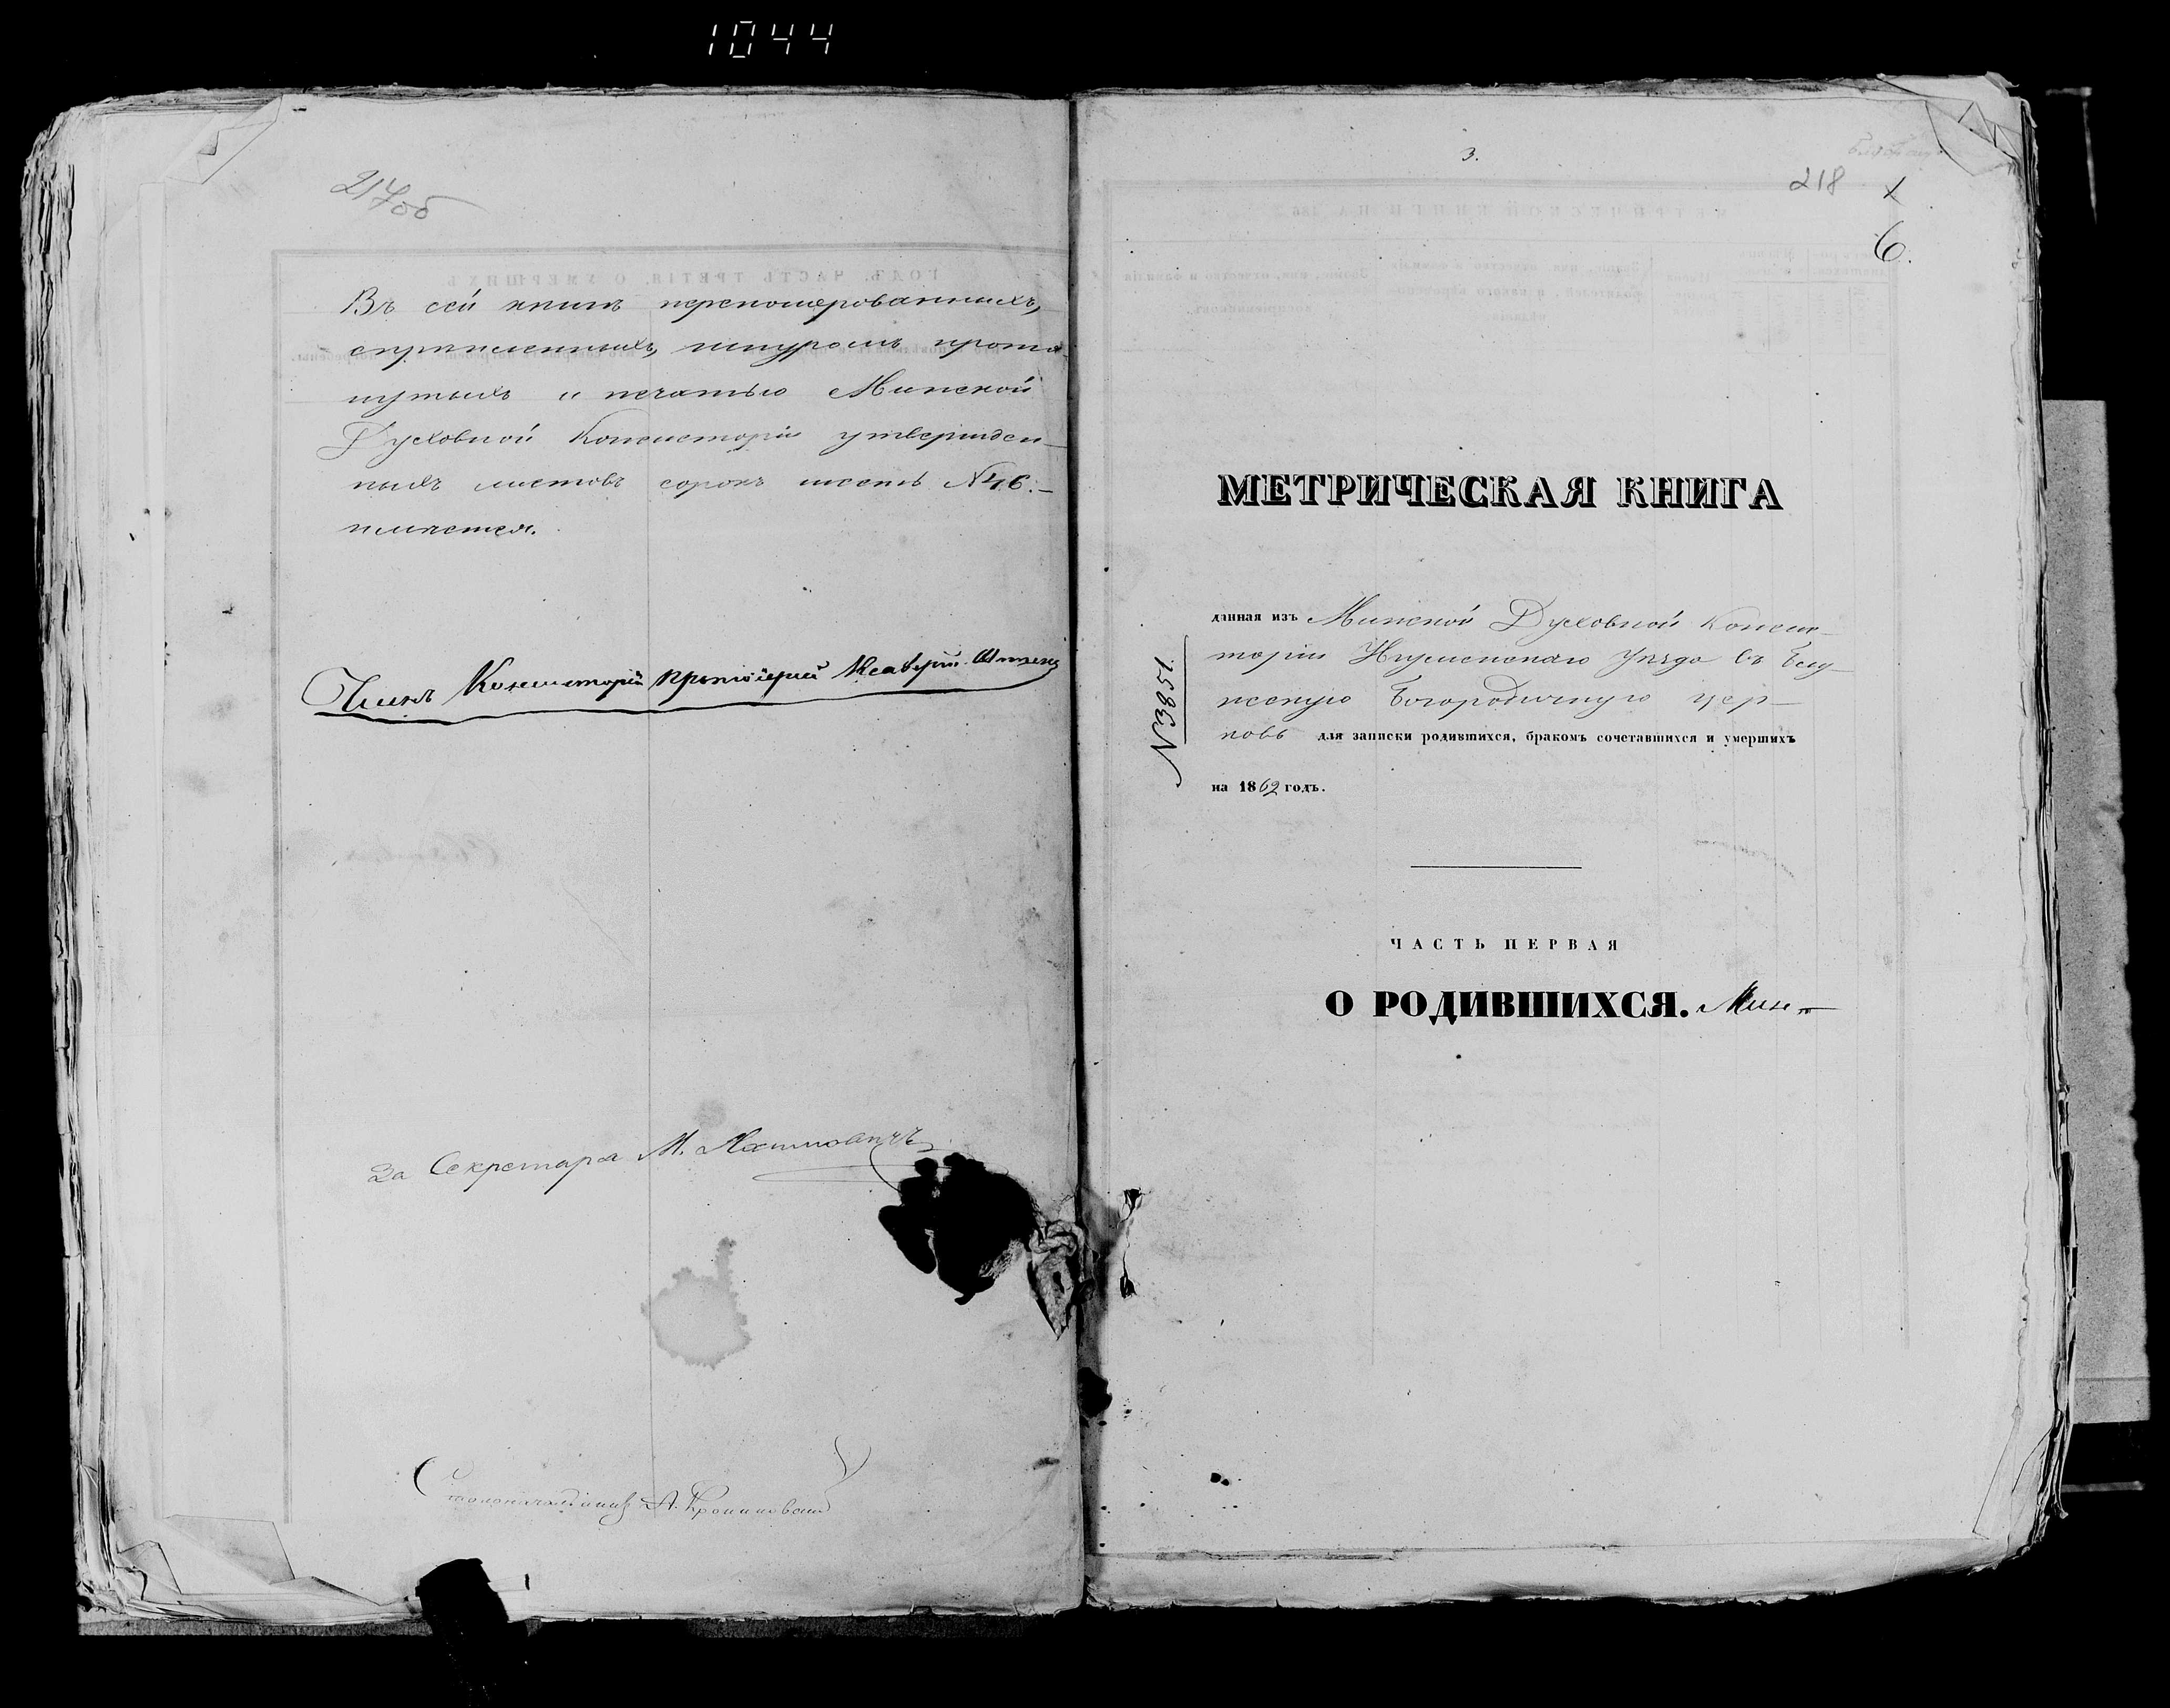 1044
217об
Въ сей книгѣ перенумерованныхъ,
скрѣпленныхъ, шнуромъ протя-
нутыхъ и печатью Минской
Духовной Консисторіи утвержден-
ныхъ листовъ сорокъ шесть №46.-
имѣется.
Членъ Консисторіи Протоіерей
За Секретаря М.
Столоначальникъ А.
3.
218
х
6.
МЕТРИЧЕСКАЯ КНИГА
№3851.
данная изъ Минской Духовной Консис-
торіи Игуменскаго Уѣзда въ
Богородичную цер-
ковь для записки родившихся, бракомъ сочетавшихся и умершихъ
на 1862 годъ.
ЧАСТЬ ПЕРВАЯ
О РОДИВШИХСЯ.